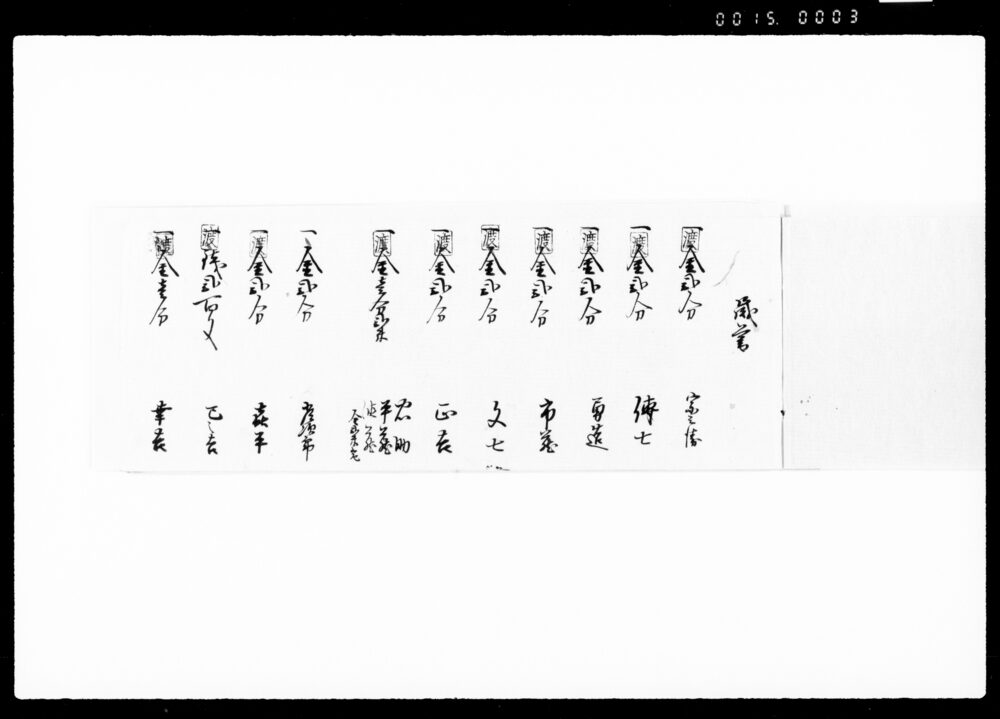 0015. 0003
歳暮
一金弐分 渡
一金弐分 渡 傳七
一金弐分 渡 勇造
一金弐分 渡 市蔵
一金弐分 渡 文七
一金弐分 渡 正吉
一金壱分弐朱 渡 忠助 平蔵
一金弐分
一金弐分 渡 嘉平
一銭弐百文 渡 巳之吉
一金壱分 渡 幸吉